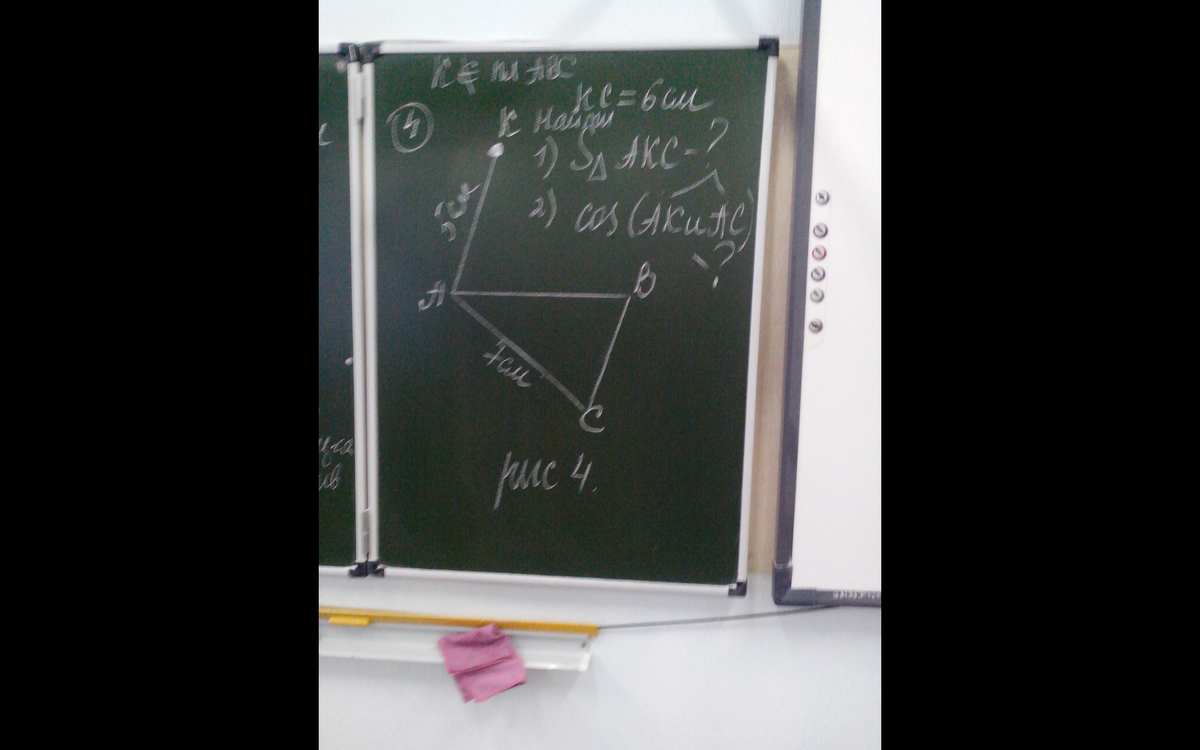 K ∉ пл ABC
KC = 6 см
④
K Найти
1) S△ AKC - ?
2) cos (AK и AC)
- ?
A
B
7 см
C
рис 4.